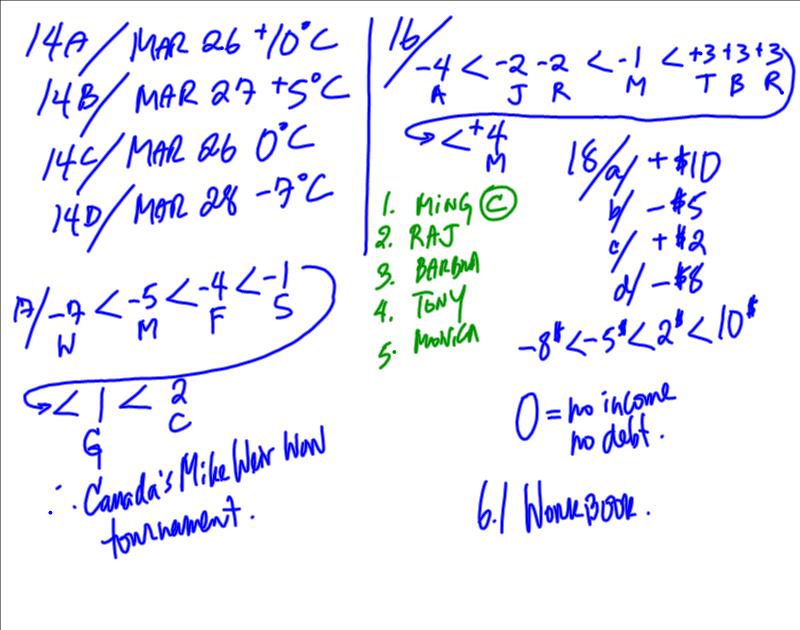 14A/ MAR 26 +10°C
14B/ MAR 27 +5°C
14C/ MAR 26 0°C
14D/ MAR 28 -7°C
17/ -7 < -5 < -4 < -1
W M F S
< 1 < 2
G C
∴ Canada's Mike Weir Won
tournament.
16/
-4 < -2 -2 < -1 < +3 +3 +3
A J R M T B R
< +4
M
1. MiNG C
2. RAJ
3. BARBRA
4. TONY
5. MONICA
18/a/ + $10
b/ - $5
c/ + $2
d/ - $8
-8$ < -5$ < 2$ < 10$
0 = no income
no debt.
6.1 WORKBOOK.